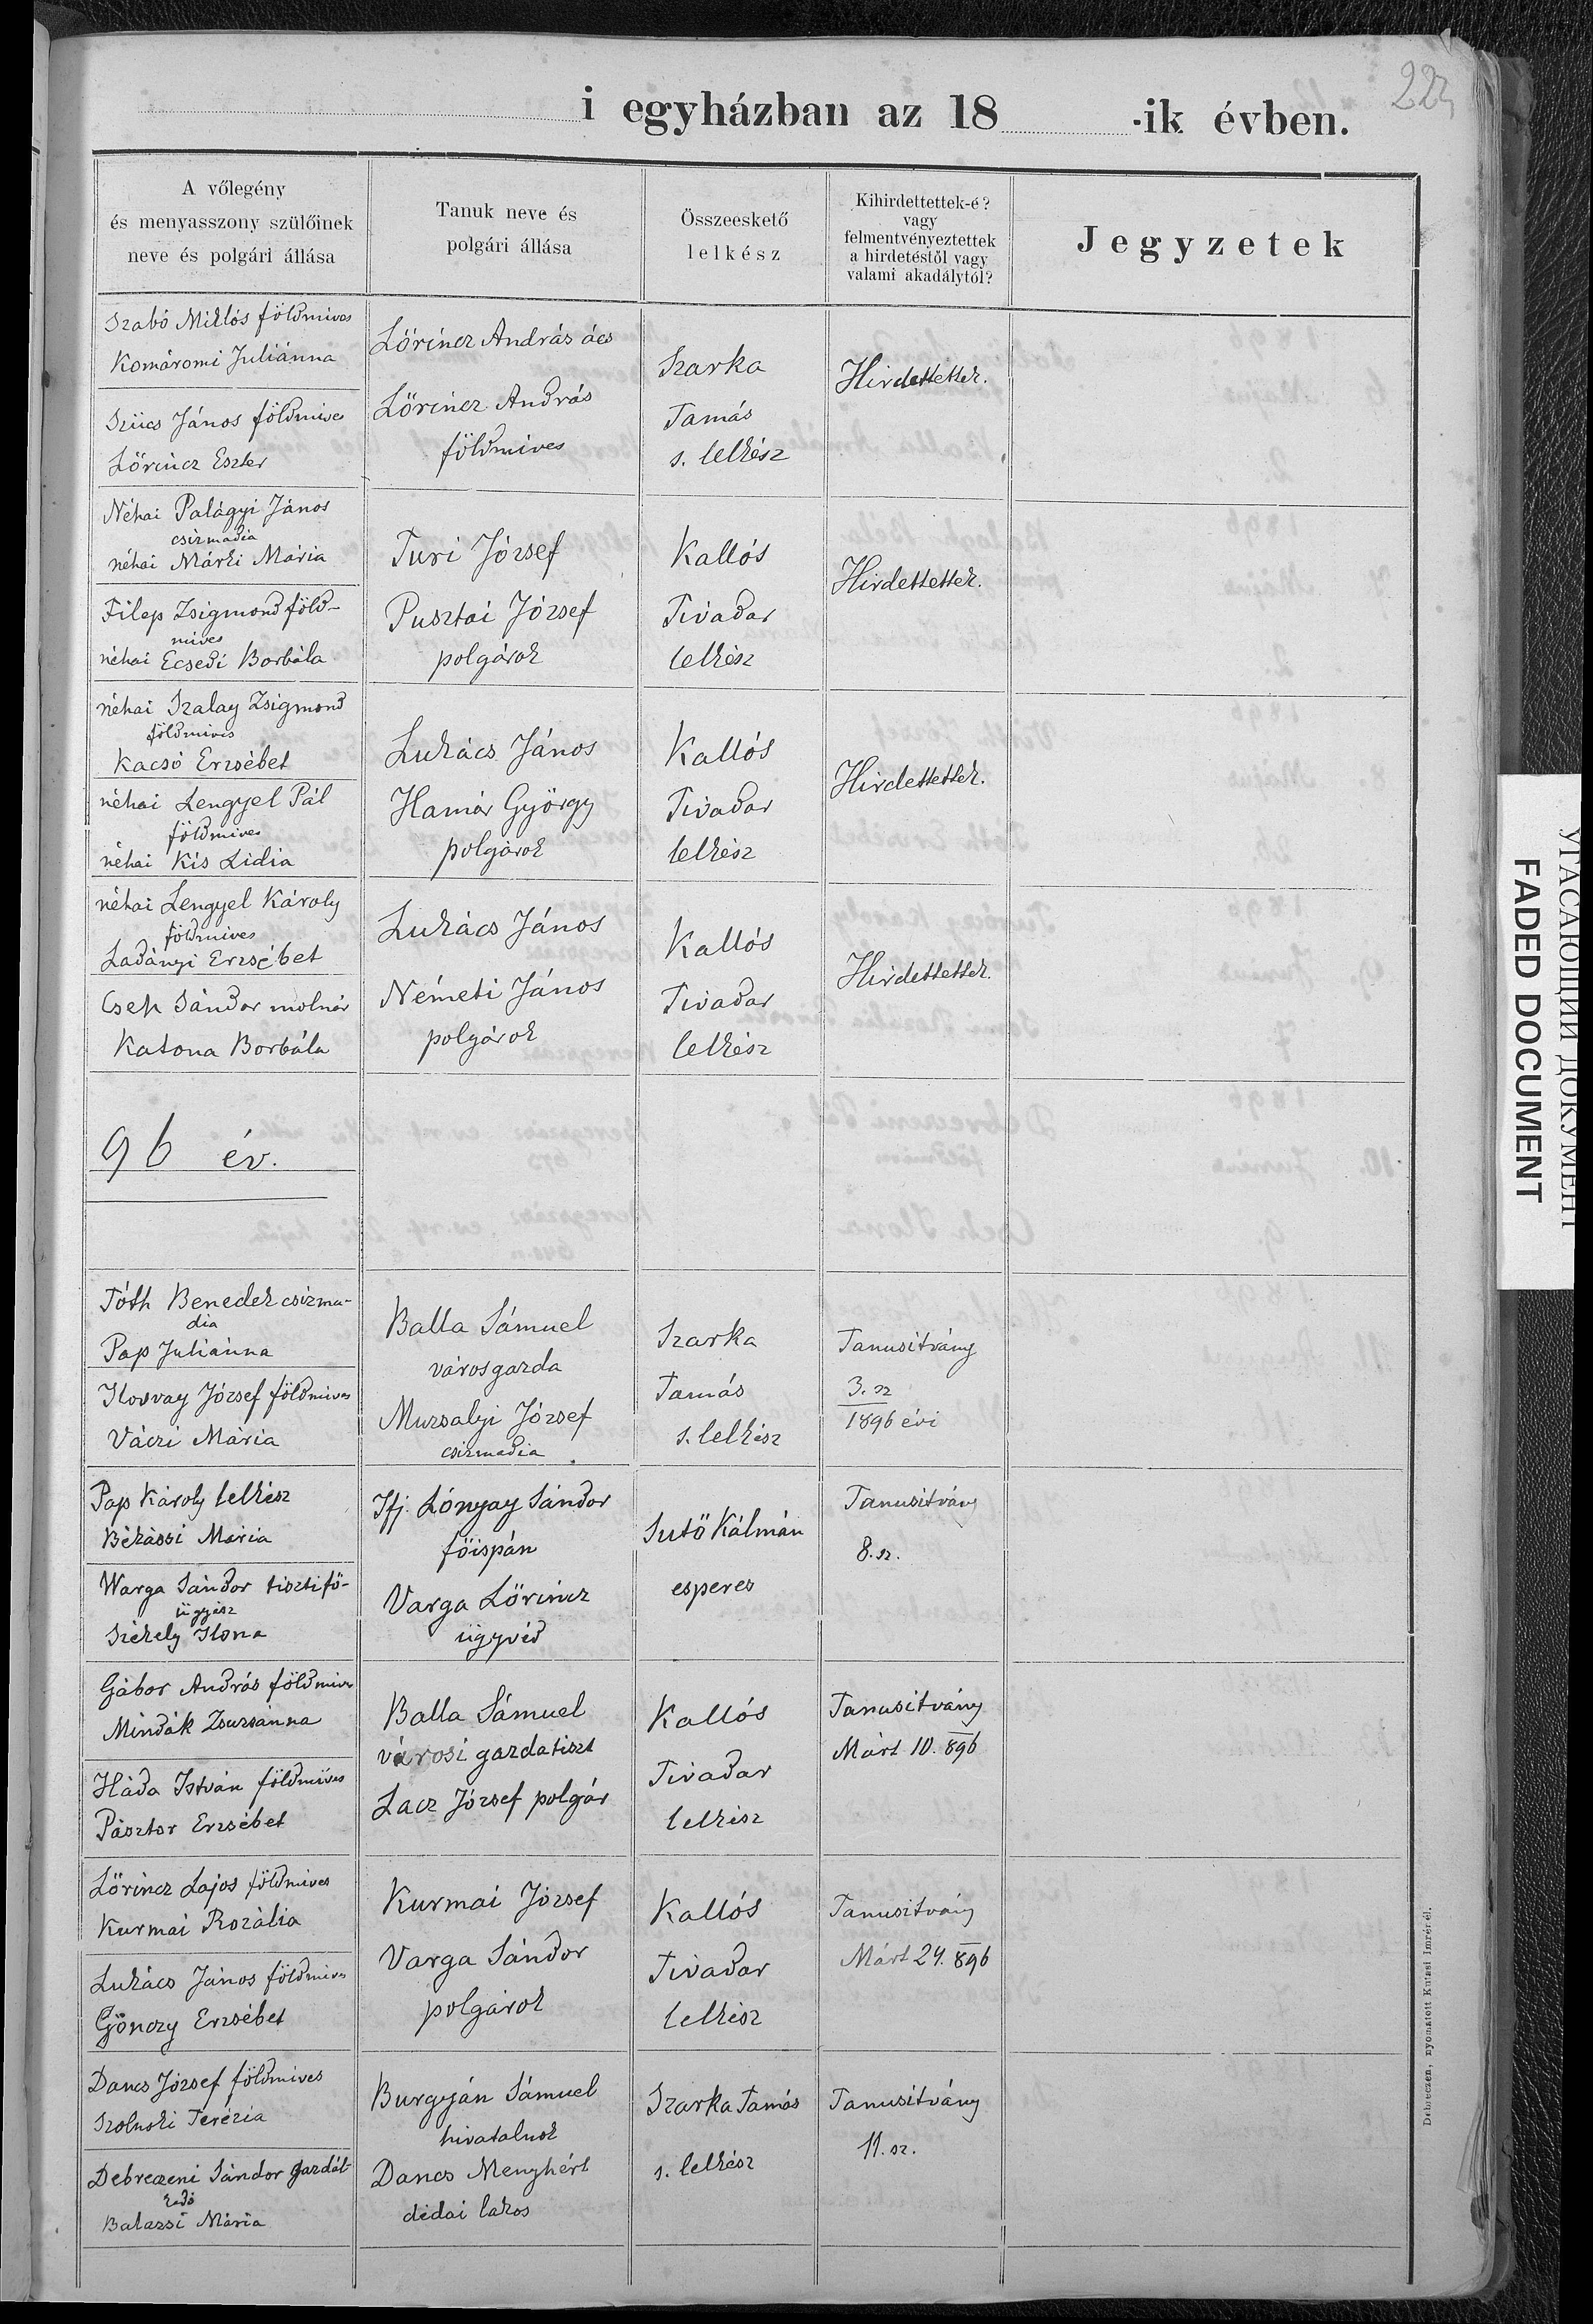 223
i egyházban az 18 -ik évben.
A vőlegény
és menyasszony szülőinek
neve és polgári állása
Tanuk neve és
polgári állása
Összeeskető
lelkész
Kihirdettettek-é?
vagy
felmentvényeztettek
a hirdetéstől vagy
valami akadálytól?
Jegyzetek
Szabó Miklós földmives
Komáromi Juliánna
Szücs János földmives
Lőrincz Eszter
Lőrincz András ács
Lőrincz András
földmives
Szarka
Tamás
s. lelkész
Hirdettettek.
Néhai Palágyi János
csizmadia
néhai Márki Mária
Filep Zsigmond föld-
mives
néhai Ecsedi Borbála
Turi József
Pusztai József
polgárok
Kallós
Tivadar
lelkész
Hirdettettek.
néhai Szalay Zsigmond
földmives
Kacsó Erzsébet
néhai Lengyel Pál
földmives
néhai Kis Lidia
Lukács János
Hamár György
polgárok
Kallós
Tivadar
lelkész
Hirdettettek.
néhai Lengyel Károly
földmives
Ladányi Erzsébet
Cseh Sándor molnár
Katona Borbála
Lukács János
Németi János
polgárok
Kallós
Tivadar
lelkész
Hirdettettek.
96 év.
Tóth Benedek csizma-
dia
Pap Juliánna
Ilosvay József földmives
Váczi Mária
Balla Sámuel
városgazda
Muzsalyi József
csizmadia
Szarka
Tamás
s. lelkész
Tanusitvány
3. sz
1896 évi
Pap Károly lelkész
Békássi Mária
Warga Sándor tisztifő-
ügyész
Székely Ilona
Ifj. Lónyay Sándor
főispán
Varga Lőrincz
ügyvéd
Sütő Kálmán
esperes
Tanusitvány
8. sz.
Gábor András földmives
Mindák Zsuzsánna
Háda István földmives
Pásztor Erzsébet
Balla Sámuel
városi gazdatiszt
Lacz József polgár
Kallós
Tivadar
lelkész
Tanusitvány
Márt 10. 896
Lőrincz Lajos földmives
Kurmai Rozália
Lukács János földmives
Gönczy Erzsébet
Kurmai József
Varga Sándor
polgárok
Kallós
Tivadar
lelkész
Tanusitvány
Márt 24. 896
Dancs József földmives
Szolnoki Terézia
Debreczeni Sándor gazdál-
kodó
Balazsi Mária
Burgyán Sámuel
hivatalnok
Dancs Menyhért
dédai lakos
Szarka Tamás
s. lelkész
Tanusitvány
11. sz.
Debreczen, nyomatott Kutasi Imrénél.
УГАСАЮЩИЙ ДОКУМЕНТ
FADED DOCUMENT